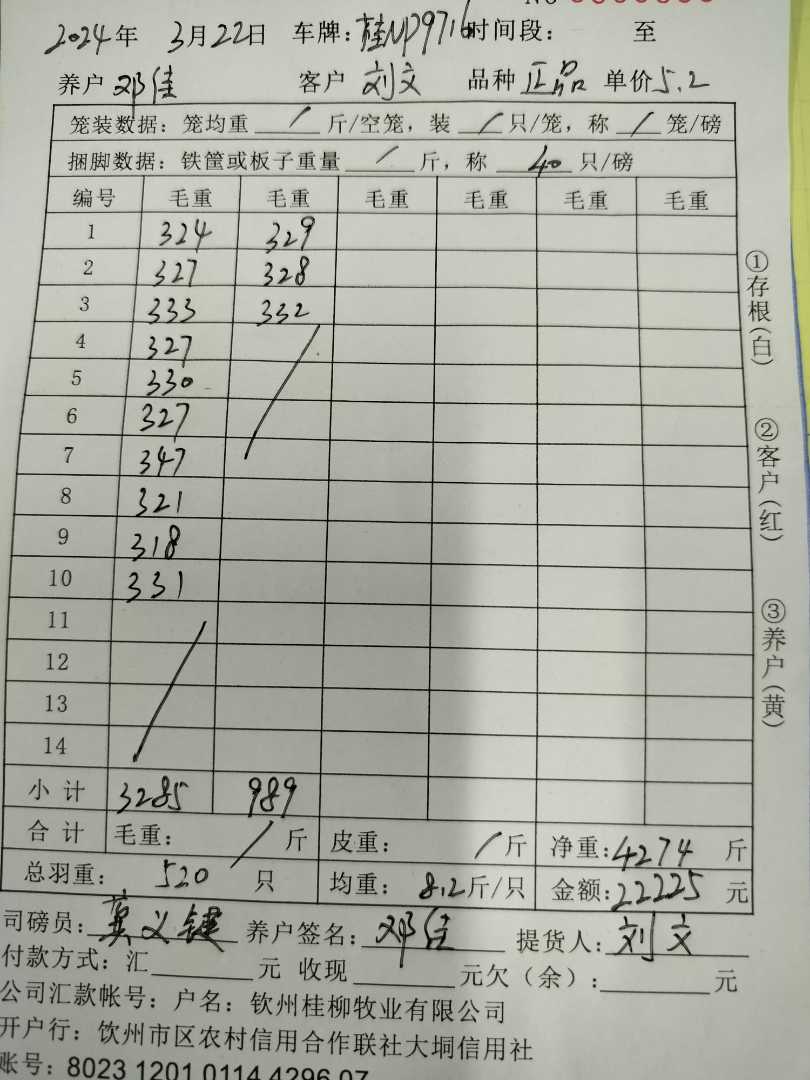 2024年 3月22日 车牌:桂NP9716时间段: 至
养户 邓佳 客户 刘文 品种 正品 单价5.2
笼装数据:笼均重 / 斤/空笼,装 / 只/笼,称 / 笼/磅
捆脚数据:铁筐或板子重量 / 斤,称 40 只/磅
编号 毛重 毛重 毛重 毛重 毛重 毛重
1 324 329
2 327 328
3 333 332
4 327
5 330
6 327
7 347
8 321
9 318
10 331
11
12
13
14
小计 3285 989
合计 毛重: / 斤 皮重: / 斤 净重:4274 斤
总羽重: 520 只 均重: 8.2斤/只 金额:22225 元
司磅员: 莫义键 养户签名: 邓佳 提货人: 刘文
付款方式:汇 元 收现 元欠(余): 元
公司汇款帐号:户名:钦州桂柳牧业有限公司
开户行:钦州市区农村信用合作联社大垌信用社
账号:8023 1201 0114 4296 07
①存根(白)
②客户(红)
③养户(黄)